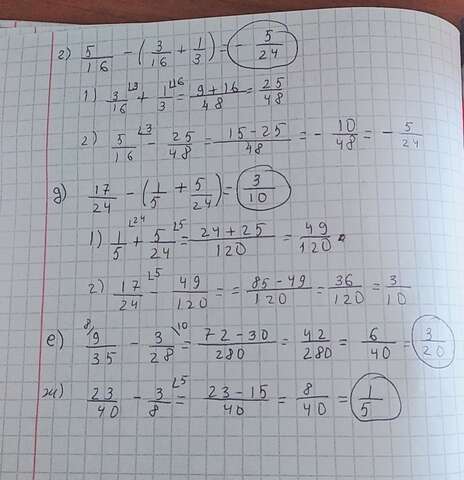 г) 5/16 - (3/16 + 1/3) = - 5/24
1) 3/16 ⌊3 + 1/3 ⌊16 = 9+16/48 = 25/48
2) 5/16 ⌊3 - 25/48 = 15-25/48 = - 10/48 = - 5/24
д) 17/24 - (1/5 + 5/24) = 3/10
1) 1/5 ⌊24 + 5/24 ⌊5 = 24+25/120 = 49/120
2) 17/24 ⌊5 - 49/120 = = 85-49/120 = 36/120 = 3/10
е) 8/ 9/35 - 3/28 \10 = 72-30/280 = 42/280 = 6/40 = 3/20
ж) 23/40 - 3/8 ⌊5 = 23-15/40 = 8/40 = 1/5